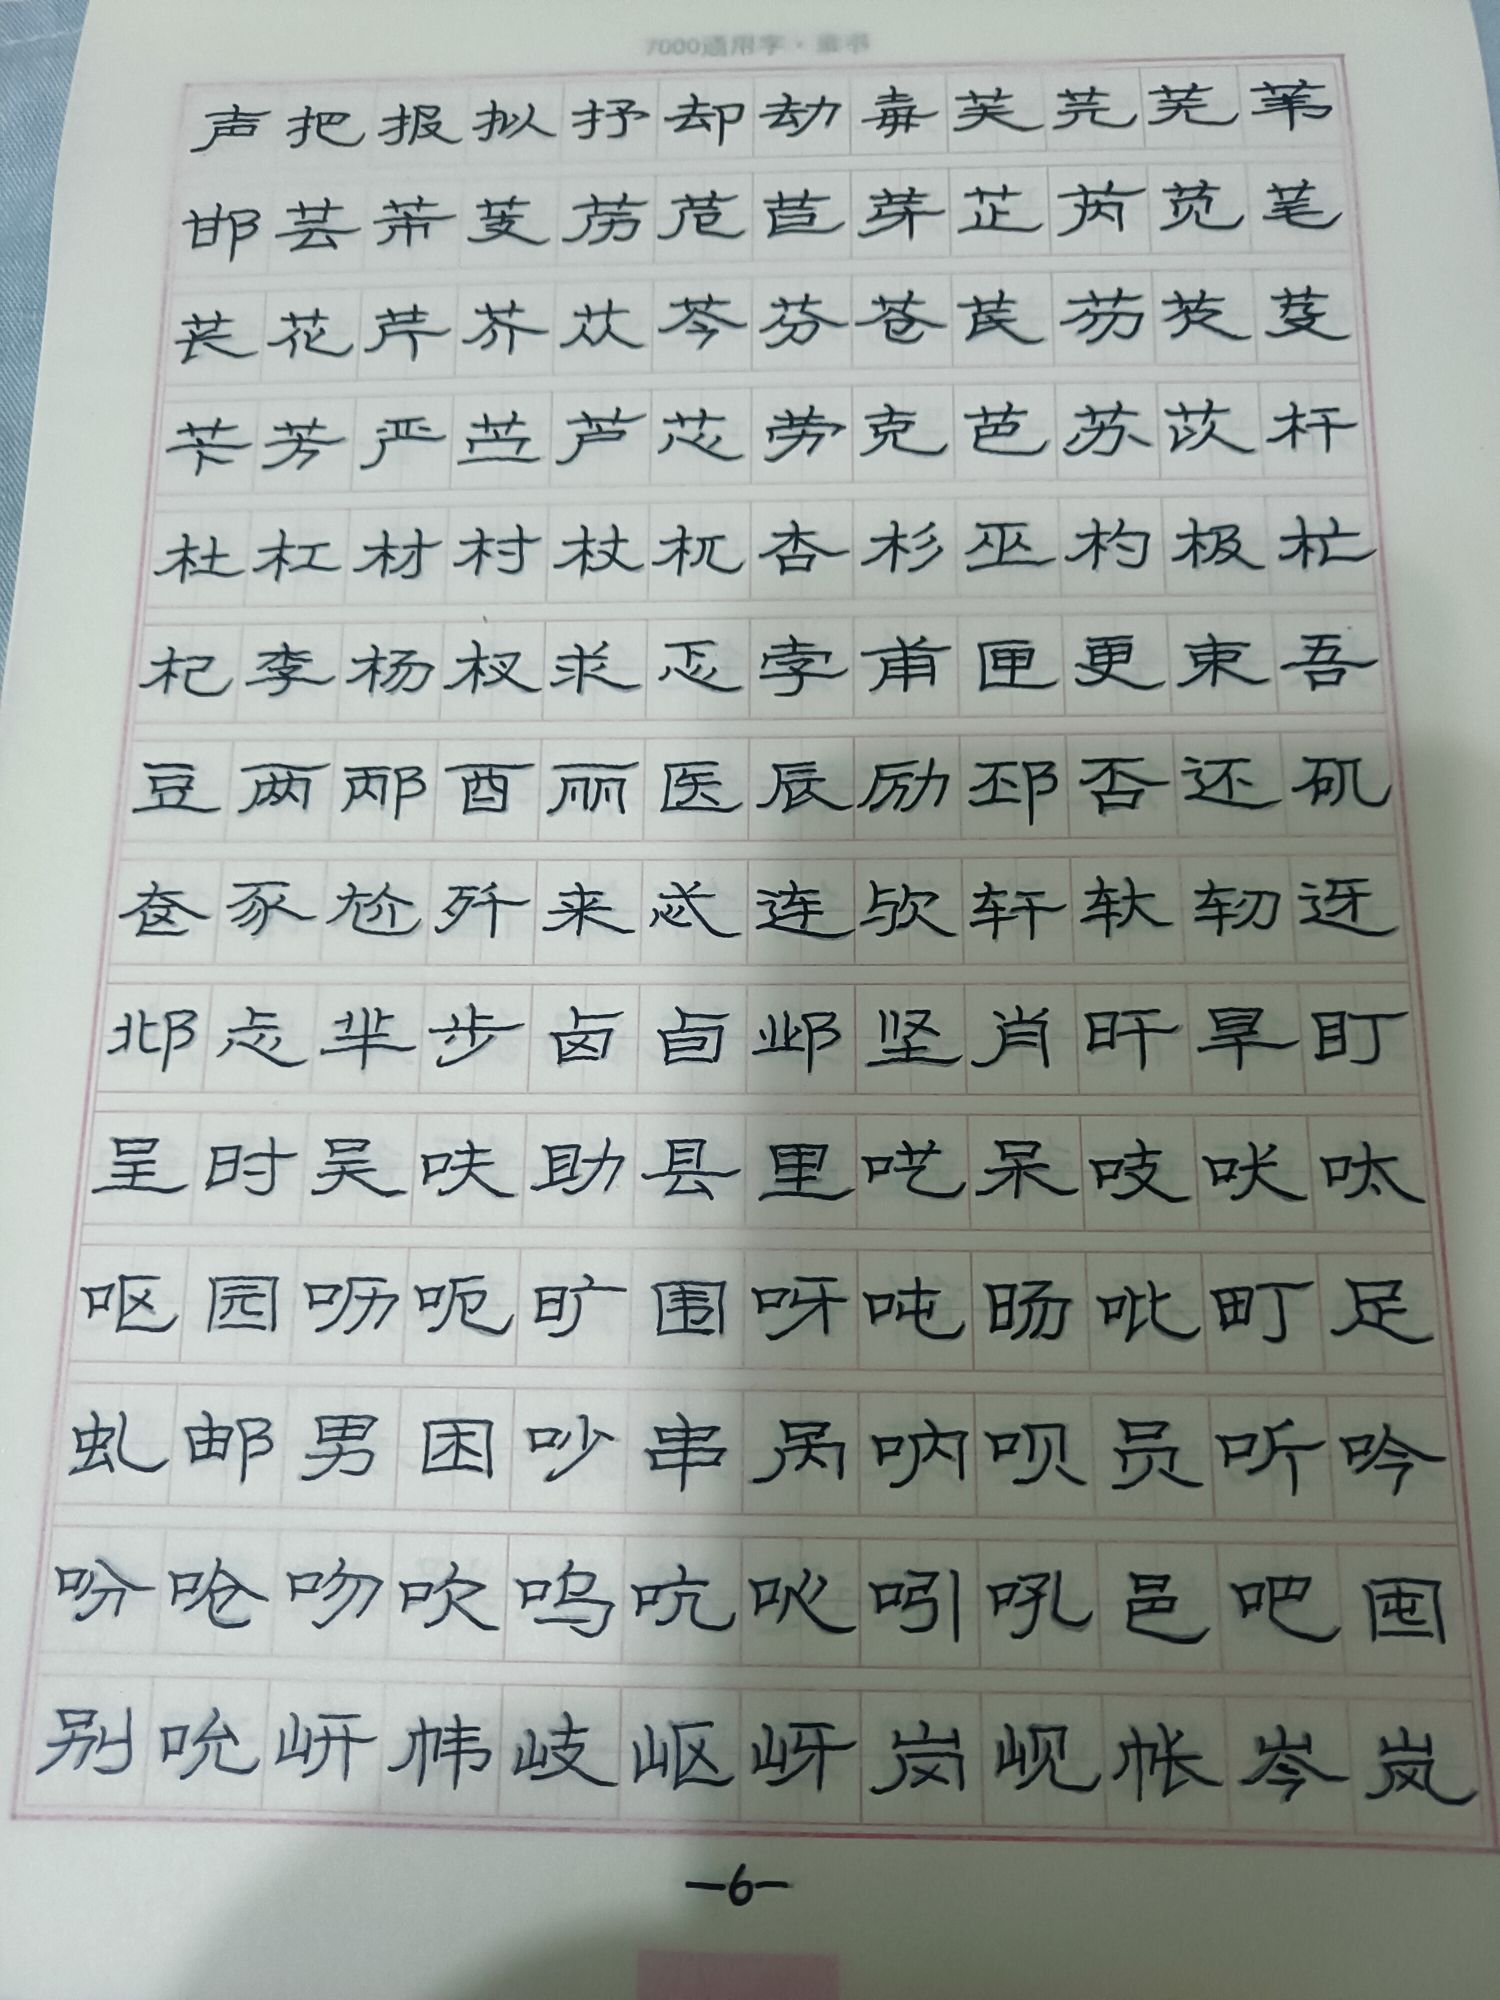 7000通用字·隶书
声把报拟抒却劫毐芙芫芜苇
邯芸芾芰苈苊苣芽芷芮苋芼
苌花芹芥苁芩芬苍芪芴芡芟
苄芳严苎芦芯劳克芭苏苡杆
杜杠材村杖杌杏杉巫杓极杧
杞李杨杈求忑孛甫匣更束吾
豆两邴酉丽医辰励邳否还矶
奁豕尬歼来忒连欤轩轪轫迓
邶忐芈步卤卣邺坚肖旰旱盯
呈时吴呋助县里呓呆吱吠呔
呕园呖呃旷围呀吨旸吡町足
虬邮男困吵串呙呐呗员听吟
吩呛吻吹呜吭吣吲吼邑吧囤
别吮岍帏岐岖岈岗岘帐岑岚
—6—